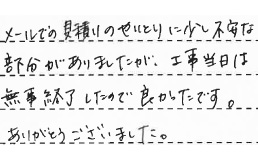 メールでの見積りのやりとりに少し不安な
部分がありましたが、工事当日は
無事終了したので良かったです。
ありがとうございました。